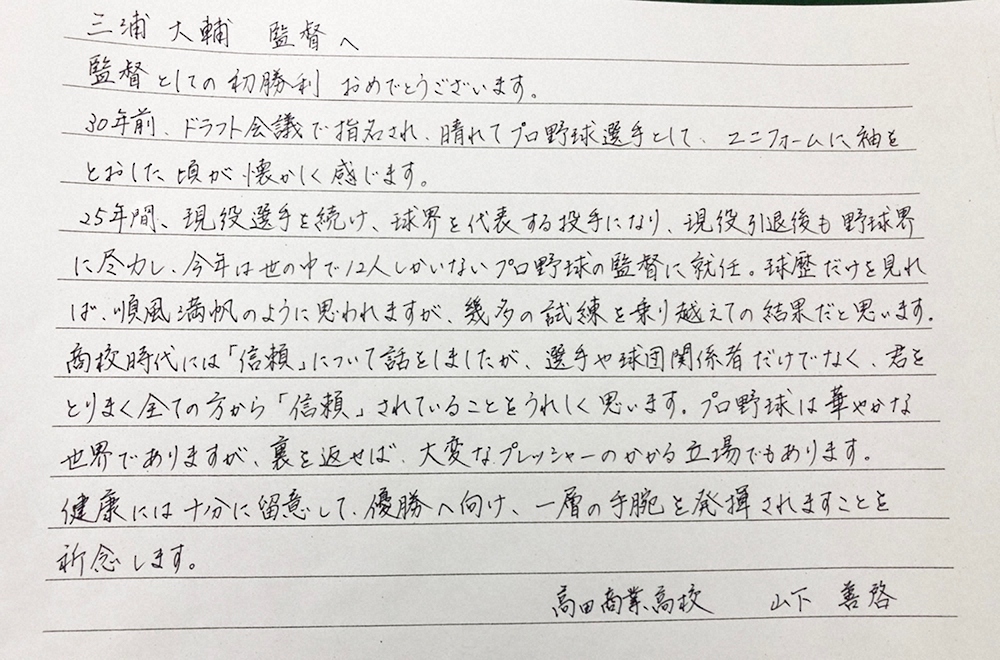 三浦 大輔 監督へ
監督としての初勝利 おめでとうございます。
30年前、ドラフト会議で指名され、晴れてプロ野球選手として、ユニフォームに袖を
とおした頃が懐かしく感じます。
25年間、現役選手を続け、球界を代表する投手になり、現役引退後も野球界
に尽力し、今年は世の中で12人しかいないプロ野球の監督に就任。球歴だけを見れ
ば、順風満帆のように思われますが、幾多の試練を乗り越えての結果だと思います。
高校時代には「信頼」について話をしましたが、選手や球団関係者だけでなく、君を
とりまく全ての方から「信頼」されていることをうれしく思います。プロ野球は華やかな
世界でありますが、裏を返せば、大変なプレッシャーのかかる立場でもあります。
健康には十分に留意して、優勝へ向け、一層の手腕を発揮されますことを
祈念します。
高田商業高校 山下 善啓